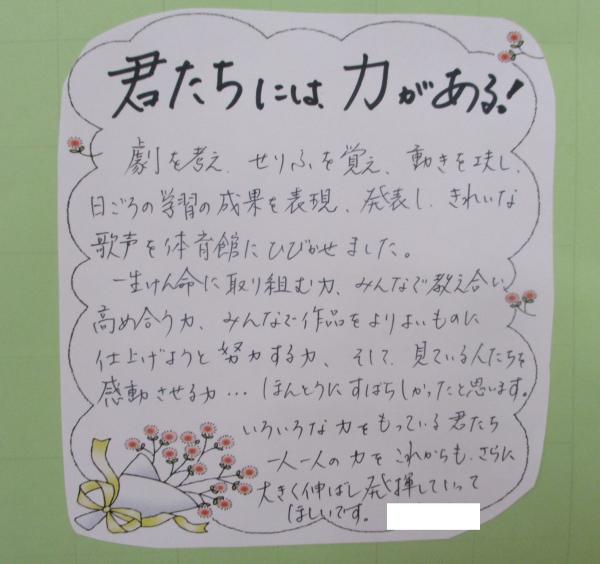 君たちには力がある!
劇を考え、せりふを覚え、動きを工夫し、
日ごろの学習の成果を表現、発表し、きれいな
歌声を体育館にひびかせました。
一生けん命に取り組む力、みんなで教え合い
高め合う力、みんなで作品をよりよいものに
仕上げようと努力する力、そして、見ている人たちを
感動させる力…ほんとうにすばらしかったと思います。
いろいろな力をもっている君たち
一人一人の力をこれからも、さらに
大きく伸ばし発揮していって
ほしいです。